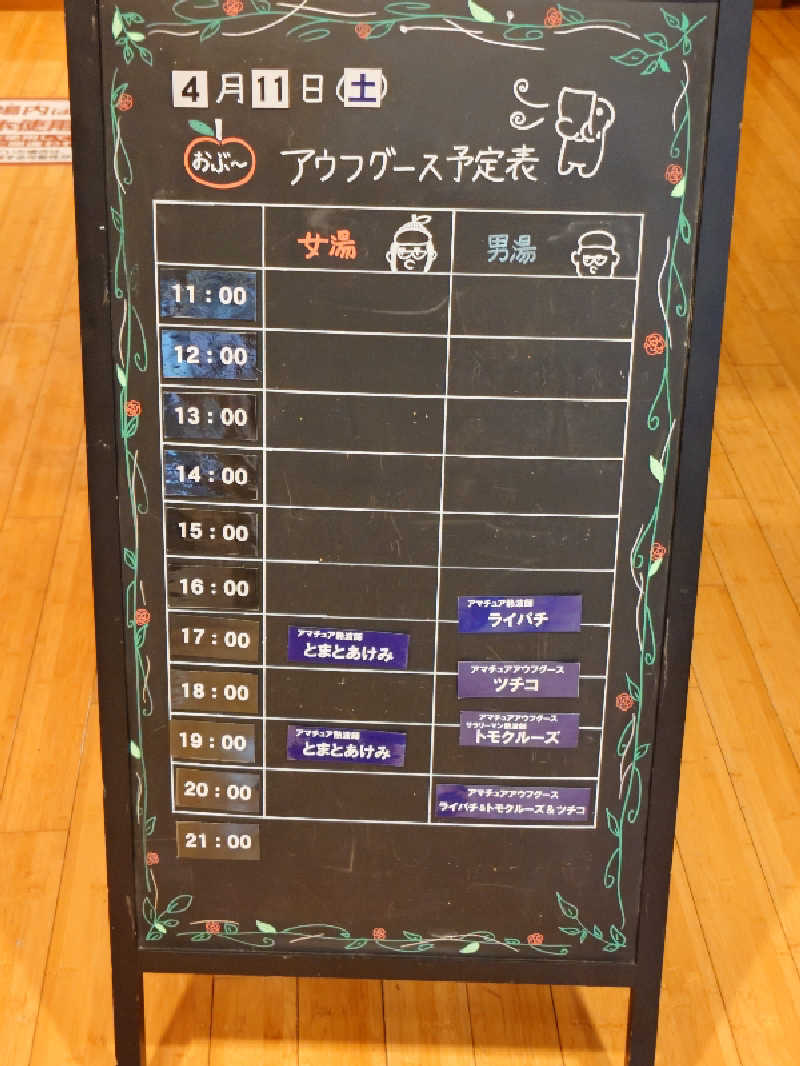 4月11日(土)
おぶ～ アウフグース予定表
女湯 男湯
11:00
12:00
13:00
14:00
15:00
16:00
アマチュア熱波師
ライパチ
17:00
アマチュア熱波師
とまとあけみ
アマチュアアウフグース
ツチコ
18:00
アマチュアアウフグース
サラリーマン熱波師
トモクルーズ
19:00
アマチュア熱波師
とまとあけみ
20:00
アマチュアアウフグース
ライパチ&トモクルーズ&ツチコ
21:00